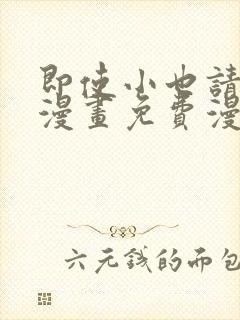 即使小也請
漫畫免費漫
六元錢的面包